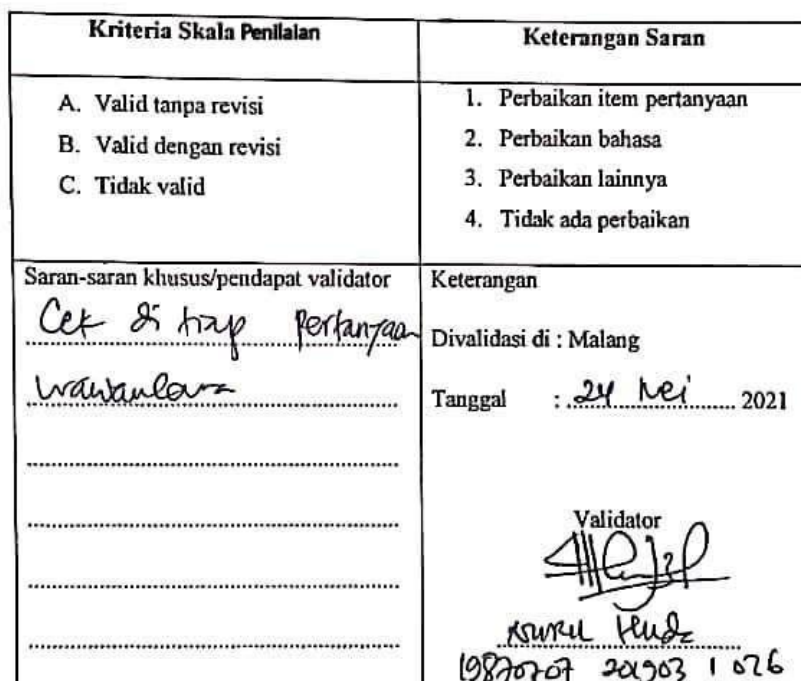 Kriteria Skala Penilaian
Keterangan Saran
A. Valid tanpa revisi
B. Valid dengan revisi
C. Tidak valid
1. Perbaikan item pertanyaan
2. Perbaikan bahasa
3. Perbaikan lainnya
4. Tidak ada perbaikan
Saran-saran khusus/pendapat validator
Cek di tiap pertanyaan
wawancara
Keterangan
Divalidasi di : Malang
Tanggal : 24 Mei 2021
Validator
Nurul Huda
19870707 201903 1 026